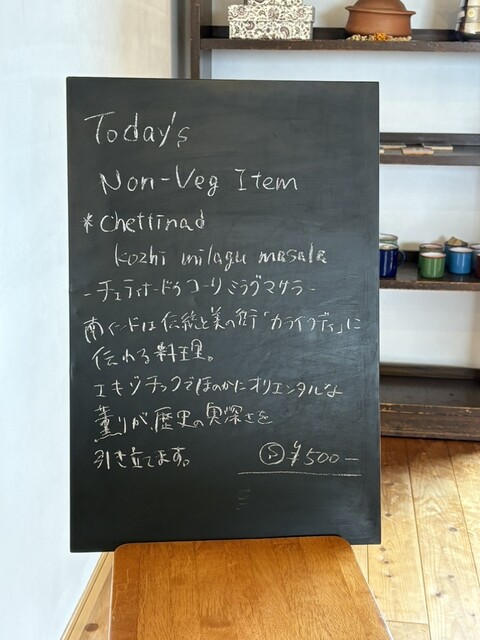 Today's
Non-Veg Item
*Chettinad
kozhi milagu masala
-チェティナードゥコーリミラグマサラ-
南インドは伝統と美の街「カライクディ」に
伝わる料理。
エキゾチックでほのかにオリエンタルな
薫りが、歴史の奥深さを
引き立てます。
Ⓢ¥500-